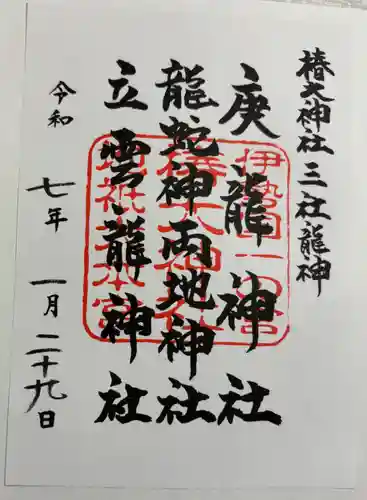 椿大神社 三社龍神
庚龍神社
龍蛇神両地神社
立雲龍神社
令和 七年 一月 二十九日
伊勢国一の宮
椿大神社